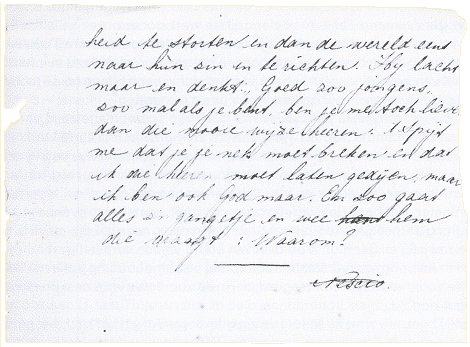 heid te storten en dan de wereld eens
naar hùn zin in te richten. Hij lacht
maar en denkt: „Goed zoo jongens,
zoo mal als je bent, ben je me toch liever
dan die mooie wijze heeren. 't Spijt
me dat je je nek moet breken en dat
ik die heeren moet laten gedijen, maar
ik ben ook God maar. En zoo gaat
alles z'n gangetje en wee hem
die vraagt: Waarom?
Nescio.